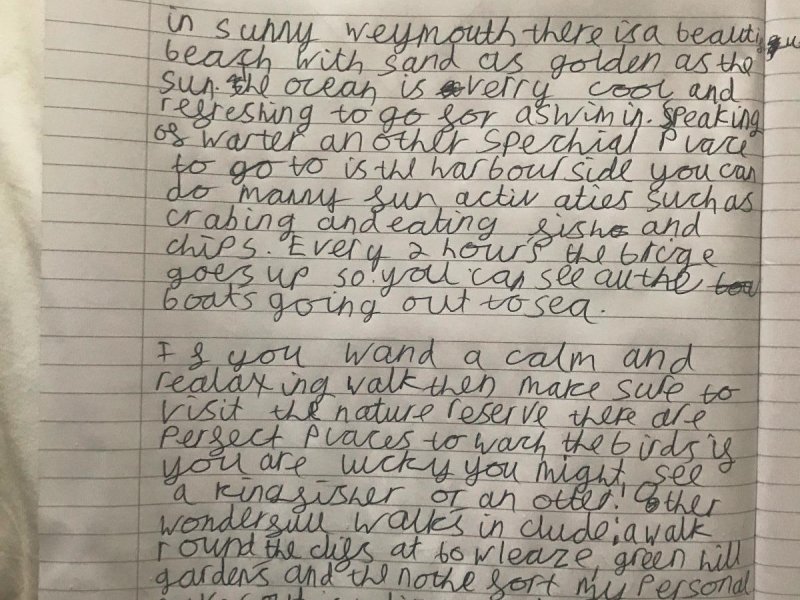 in sunny weymouth there is a beautifu
beach with sand as golden as the
sun. the ocean is verry cool and
refreshing to go for a swim in. Speaking
of warter an other sperchial Place
to go to is the harbour side you can
do manny fun activ aties such as
crabing and eating fish and
chips. Every 2 hours the brige
goes up so you can see all the
boats going out to sea.
If you wand a calm and
realaxing walk then make sure to
visit the nature reserve there are
Perfect Places to wach the birds if
you are lucky you might see
a kingfisher or an otter! Other
wonderfull walks in clude; a walk
round the clifs at bowleaze, green hill
gardens and the nothe fort my Personal